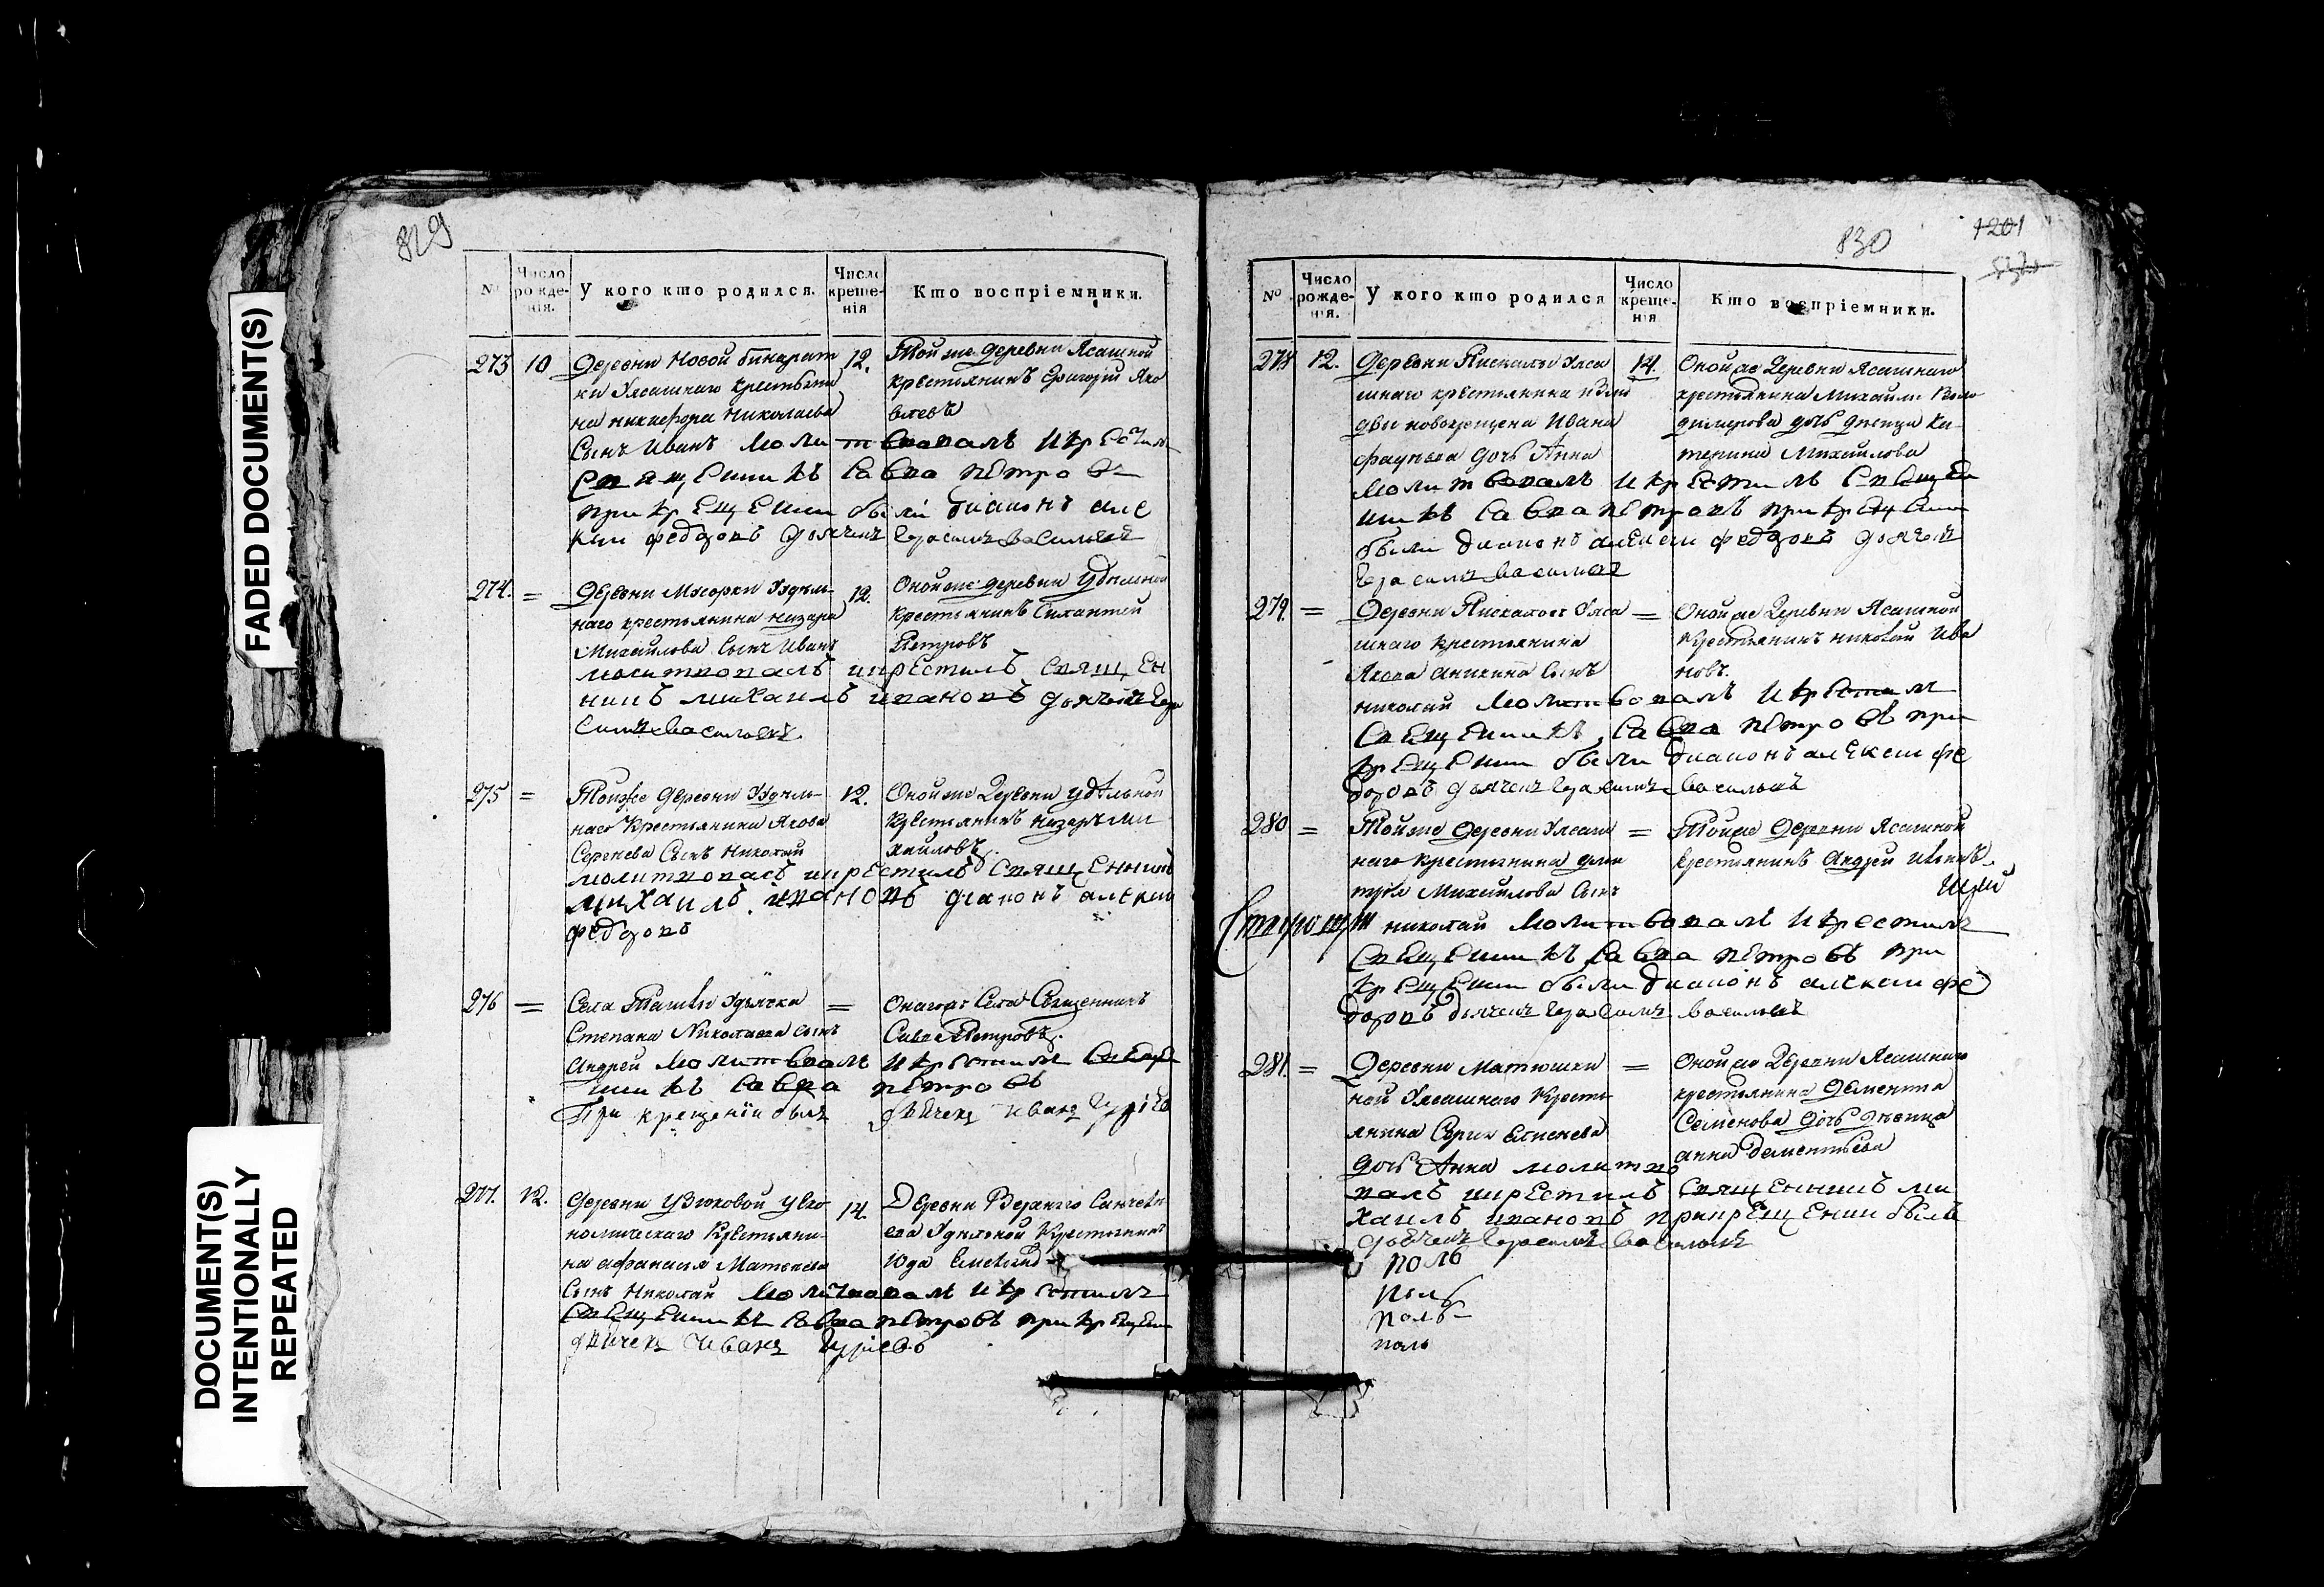 FADED DOCUMENT(S)
DOCUMENT(S)
INTENTIONALLY
REPEATED
829
№
Число рожденія.
У кого кто родился.
Число крещенія
Кто воспріемники.
273 10
Деревни Новой
ки Уясашнаго крестьяни
на никифора Николаева
Сынъ Иванъ молитвовалъ и крестилъ
Священникъ Савва петровъ
при крещении были диаконъ але
кеи федоровъ дьячекъ Герасимъ васильевъ
12.
Той же деревни Ясашной
крестьянинъ Григорій Яко
влевъ
274. =
Деревни Мусорки Уудѣль
наго крестьянина назара
Михайлова Сынъ Иванъ
молитвовалъ икрестилъ священ
никъ михаилъ ивановъ дьячекъ Гера
симъ васильевъ.
12.
Оной же деревни удѣльной
крестьянинъ
Петровъ
275 =
Тойже деревни Уудѣль
наго Крестьянина Якова
Сергеева Сынъ Николай
молитвовалъ икрестилъ священникъ
михаилъ ивановъ диаконъ алексеи
федоровъ
12.
Оной же Деревни удѣльной
Крестьянинъ назаръ Ми
хайловъ.
276 =
Села
Степана Николаева сынъ
Андрей молитвовалъ и крестилъ Священ
никъ Савва петровъ
При крещеніи былъ дьячекъ Иванъ Гуріевъ
=
Онагожъ Села Священникъ
Савва Петровъ.
277. 12.
Деревни Узюковой Уеко
номическаго Крестьяни
на афанасия Матвеева
Сынъ Николай молитвовалъ и крестилъ
Священникъ Савва петровъ при крещении
дьячекъ Иванъ Гуріевъ
14.
Деревни Верхняго
ева Удѣльной Крестьянинъ
830
1201
№
Число рожденія.
У кого кто родился
Число крещенія
Кто воспріемники.
278 12.
Деревни Пискалы Уяса
шнаго крестьянина
новокрещена Ивана
дочь Анна
молитвовалъ и крестилъ Священ
никъ Савва петровъ при крещении
были диаконъ алексеи федоровъ дьячекъ
Герасимъ васильевъ
14.
Оной же Деревни Ясашнаго
крестьянина Михайлы
дочь девица Ка
терина Михайлова
279. =
Деревни Уяса
шнаго Крестьянина
Якова аникина Сынъ
николай молитвовалъ и крестилъ
Священникъ Савва петровъ при
крещении были диаконъ алексеи фе
доровъ дьячекъ Герасимъ васильевъ
=
Оной же Деревни Ясашной
Крестьянинъ николай Ива
новъ.
280 =
Той же деревни Уясаш
наго крестьянина дми
трия Михайлова Сынъ
николай молитвовалъ и крестилъ
Священникъ Савва петровъ при
крещении были диаконъ алексеи фе
доровъ дьячекъ Герасимъ васильевъ
=
Той же деревни Ясашной
крестьянинъ Андрей Ивановъ.
281. =
Деревни Матюшки
ной Уясашнаго Кресть
янина Сергея Елисеева
дочь Анна молитво
валъ икрестилъ священникъ ми
хаилъ ивановъ прикрещении былъ
дьячекъ Герасимъ васильевъ
=
Оной же Деревни Ясашнаго
крестьянина Дементья
Семенова дочь Девица
анна дементьева
поль
поль
поль
поль